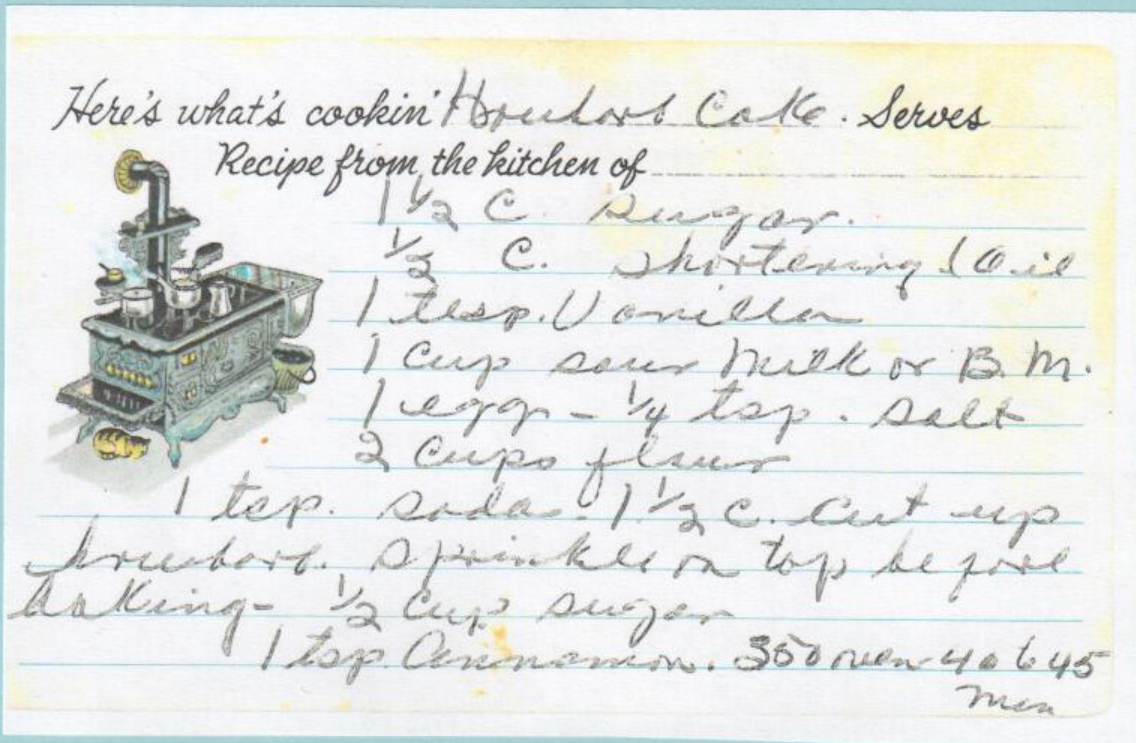 Here's what's cookin' Hrubarb Cake. Serves
Recipe from the kitchen of
1 1/2 C. sugar.
1/2 C. shortening (Oil
1 tesp. Vanilla
1 cup sour Milk or B. M.
1 egg - 1/4 tsp. salt
2 cups flour
1 tsp. soda. 1 1/2 c. cut up
hrubarb. sprinkle on top before
baking - 1/2 cup sugar
1 tsp. Cinnamon. 350 oven 40 to 45
min